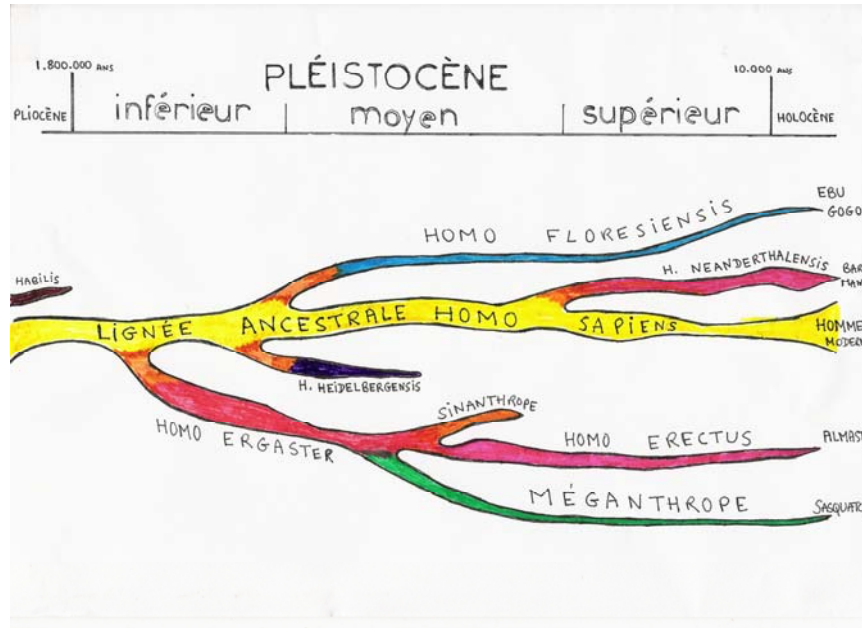 1.800.000 ANS
PLÉISTOCÈNE
10.000 ANS
PLIOCÈNE
inférieur
moyen
supérieur
HOLOCÈNE
EBU
GOGO
HOMO FLORESIENSIS
H. NEANDERTHALENSIS
BAR
MAN
HABILIS
LIGNÉE ANCESTRALE HOMO SAPIENS
HOMME
MODER
H. HEIDELBERGENSIS
SINANTHROPE
HOMO ERGASTER
HOMO ERECTUS
ALMAST
MÉGANTHROPE
SASQUAT